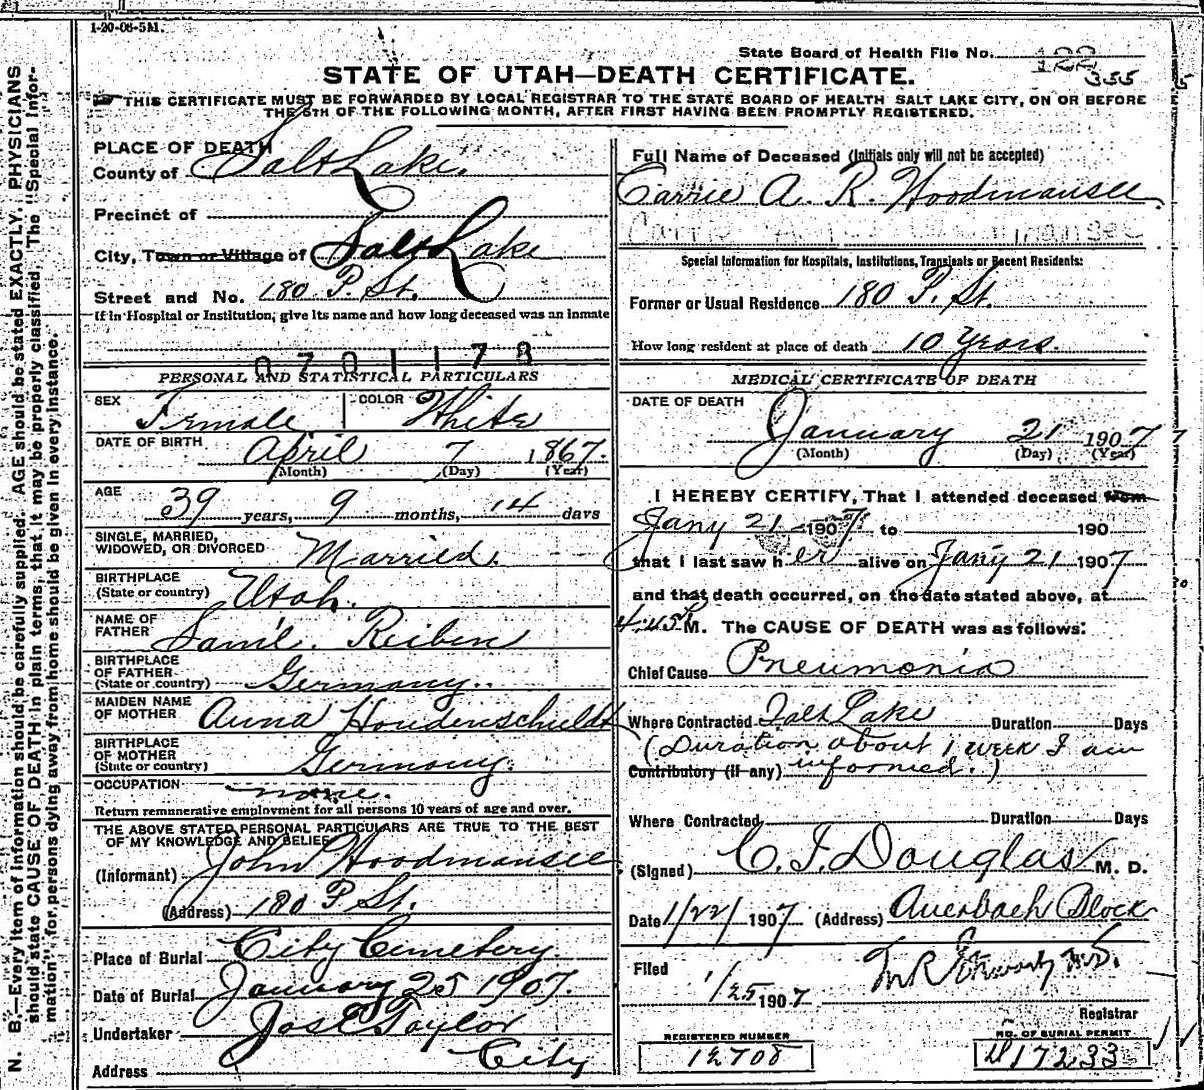 1-20-06-5M.
State Board of Health File No. 122
355
STATE OF UTAH—DEATH CERTIFICATE.
THIS CERTIFICATE MUST BE FORWARDED BY LOCAL REGISTRAR TO THE STATE BOARD OF HEALTH SALT LAKE CITY, ON OR BEFORE
THE 5TH OF THE FOLLOWING MONTH, AFTER FIRST HAVING BEEN PROMPTLY REGISTERED.
PLACE OF DEATH
County of Salt Lake.
Precinct of
City, Town or Village of Salt Lake
Street and No. 180 P. St.
If in Hospital or Institution, give its name and how long deceased was an inmate
0701178
PERSONAL AND STATISTICAL PARTICULARS
SEX Female COLOR White
DATE OF BIRTH April 7 1867.
(Month) (Day) (Year)
AGE
39 years, 9 months, 14 days
SINGLE, MARRIED,
WIDOWED, OR DIVORCED Married.
BIRTHPLACE
(State or country) Utah.
NAME OF
FATHER Saml. Reiben
BIRTHPLACE
OF FATHER
(State or country) Germany.
MAIDEN NAME
OF MOTHER Anna Houdenschieldt
BIRTHPLACE
OF MOTHER
(State or country) Germany.
OCCUPATION none.
Return remunerative employment for all persons 10 years of age and over.
THE ABOVE STATED PERSONAL PARTICULARS ARE TRUE TO THE BEST
OF MY KNOWLEDGE AND BELIEF
(Informant) John Woodmansee
(Address) 180 P St.
Place of Burial City Cemetery.
Date of Burial January 25 1907.
Undertaker Jos E Taylor
Address City
Full Name of Deceased (Initials only will not be accepted)
Carrie A. R. Woodmansee
Carrie
Special Information for Hospitals, Institutions, Transients or Recent Residents:
Former or Usual Residence 180 P. St.
How long resident at place of death 10 Years.
MEDICAL CERTIFICATE OF DEATH
DATE OF DEATH
January 21 1907
(Month) (Day) (Year)
I HEREBY CERTIFY, That I attended deceased from
Jany 21 1907 to 190
that I last saw her alive on Jany 21 1907
and that death occurred, on the date stated above, at
4.45 P M. The CAUSE OF DEATH was as follows:
Chief Cause Pneumonia
Where Contracted Salt Lake Duration Days
(Duration about 1 week I am
Contributory (if any) informed.)
Where Contracted Duration Days
(Signed) C. F. Douglas M. D.
Date 1/22/ 1907 (Address) Auerbach Block
Filed
1/25 1907 M.D.
Registrar
REGISTERED NUMBER
12708
NO. OF BURIAL PERMIT
17233
N. B.—Every item of information should be carefully supplied. AGE should be stated EXACTLY. PHYSICIANS
should state CAUSE OF DEATH in plain terms, that it may be properly classified. The "Special Infor-
mation" for persons dying away from home should be given in every instance.